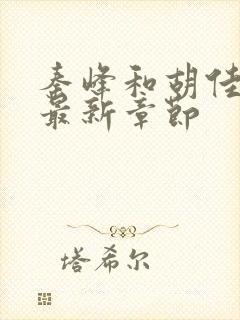 秦峰和胡佳
最新章节
塔希尔